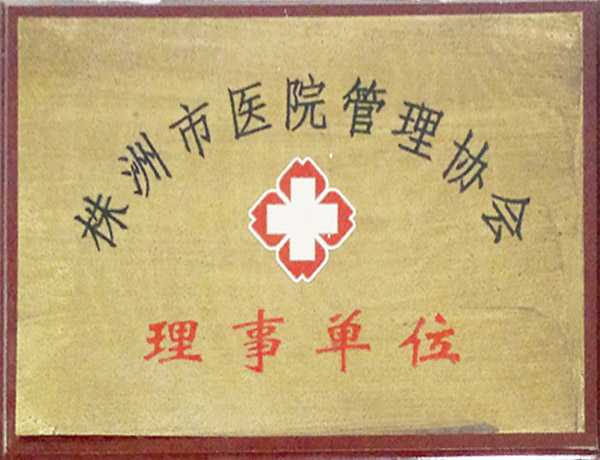 株洲市医院管理协会
理事单位